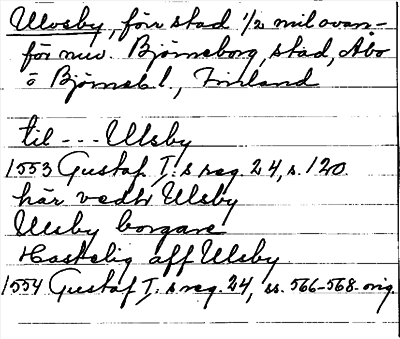 Ulvsby, förr stad 1/2 mil ovan-
för nuv. Björneborg, stad, Åbo
o Björneb. l., Finland
til --- Ulsby
1553 Gustaf I:s reg. 24, s. 120.
här vedh Ulsby
Ulsby borgare
Hastelig aff Ulsby
1554 Gustaf I:s reg. 24, ss. 566-568. orig.